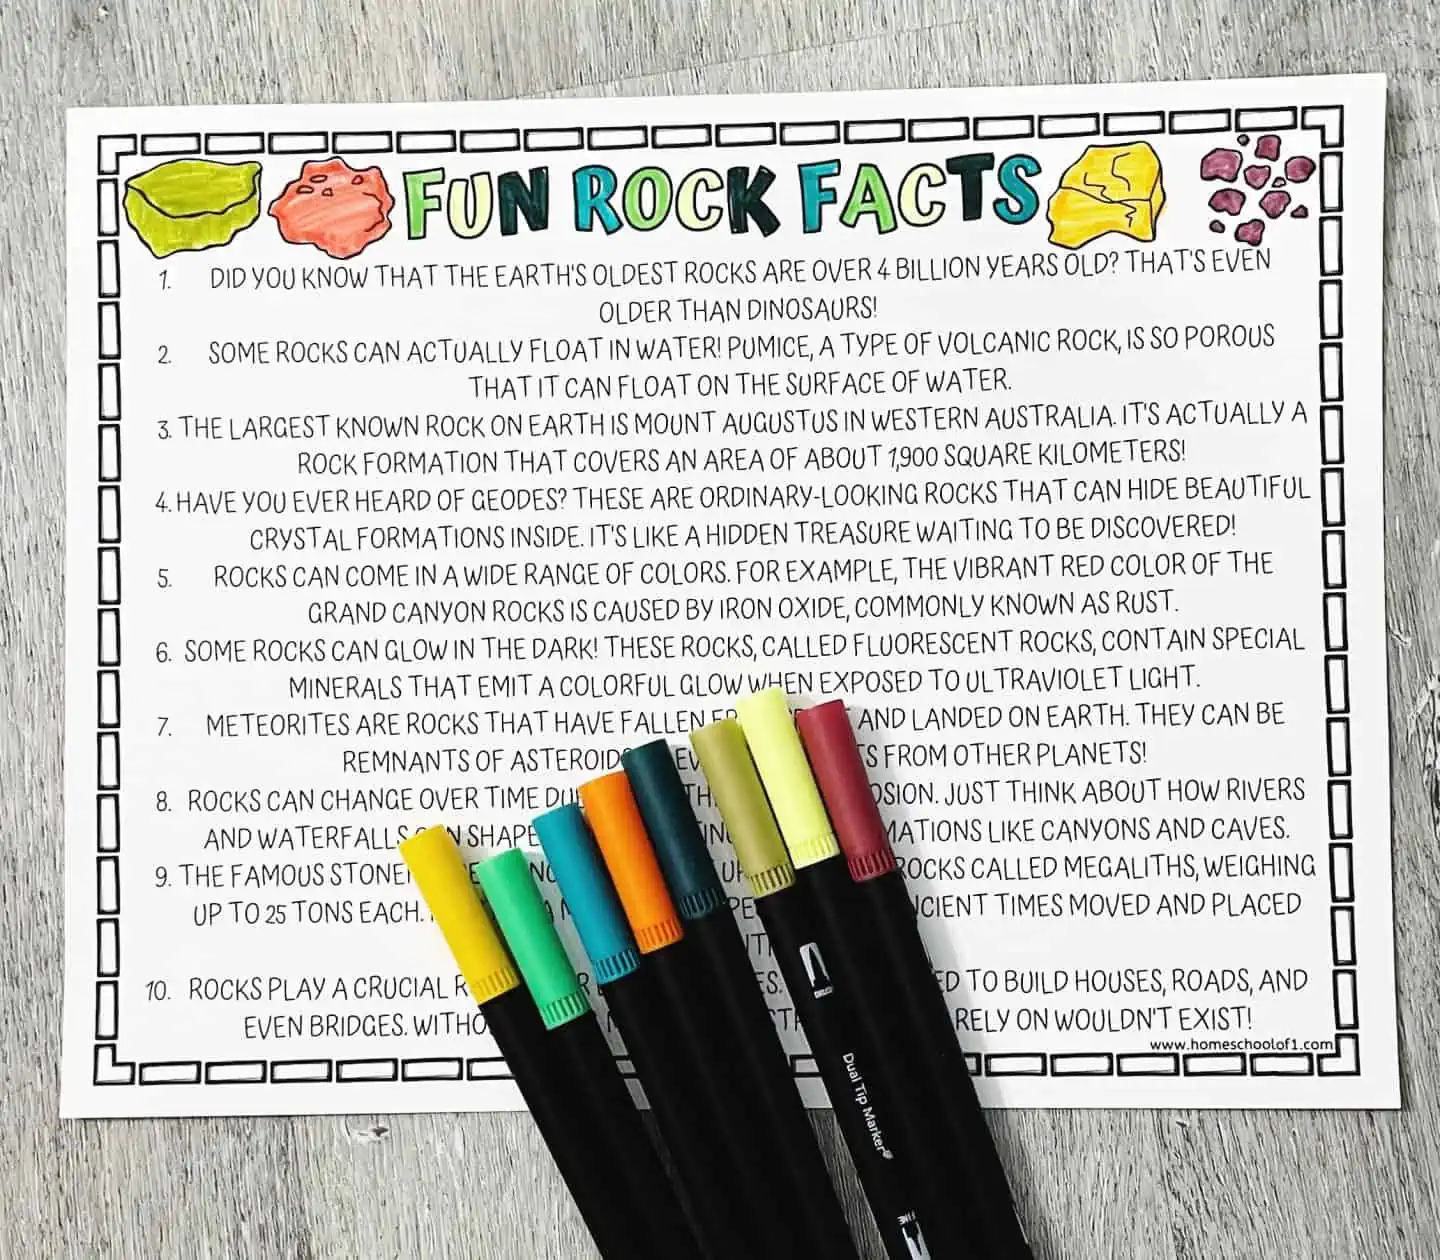 FUN ROCK FACTS
1. DID YOU KNOW THAT THE EARTH'S OLDEST ROCKS ARE OVER 4 BILLION YEARS OLD? THAT'S EVEN
OLDER THAN DINOSAURS!
2. SOME ROCKS CAN ACTUALLY FLOAT IN WATER! PUMICE, A TYPE OF VOLCANIC ROCK, IS SO POROUS
THAT IT CAN FLOAT ON THE SURFACE OF WATER.
3. THE LARGEST KNOWN ROCK ON EARTH IS MOUNT AUGUSTUS IN WESTERN AUSTRALIA. IT'S ACTUALLY A
ROCK FORMATION THAT COVERS AN AREA OF ABOUT 1,900 SQUARE KILOMETERS!
4. HAVE YOU EVER HEARD OF GEODES? THESE ARE ORDINARY-LOOKING ROCKS THAT CAN HIDE BEAUTIFUL
CRYSTAL FORMATIONS INSIDE. IT'S LIKE A HIDDEN TREASURE WAITING TO BE DISCOVERED!
5. ROCKS CAN COME IN A WIDE RANGE OF COLORS. FOR EXAMPLE, THE VIBRANT RED COLOR OF THE
GRAND CANYON ROCKS IS CAUSED BY IRON OXIDE, COMMONLY KNOWN AS RUST.
6. SOME ROCKS CAN GLOW IN THE DARK! THESE ROCKS, CALLED FLUORESCENT ROCKS, CONTAIN SPECIAL
MINERALS THAT EMIT A COLORFUL GLOW WHEN EXPOSED TO ULTRAVIOLET LIGHT.
7. METEORITES ARE ROCKS THAT HAVE FALLEN AND LANDED ON EARTH. THEY CAN BE
REMNANTS OF FROM OTHER PLANETS!
8. ROCKS CAN CHANGE OVER TIME JUST THINK ABOUT HOW RIVERS
AND WATERFALLS SHAPE LIKE CANYONS AND CAVES.
9. THE FAMOUS ROCKS CALLED MEGALITHS, WEIGHING
UP TO 25 TONS EACH. TIMES MOVED AND PLACED
10. ROCKS PLAY A CRUCIAL TO BUILD HOUSES, ROADS, AND
EVEN BRIDGES. RELY ON WOULDN'T EXIST!
www.homeschoolof1.com
Dual Tip Marker